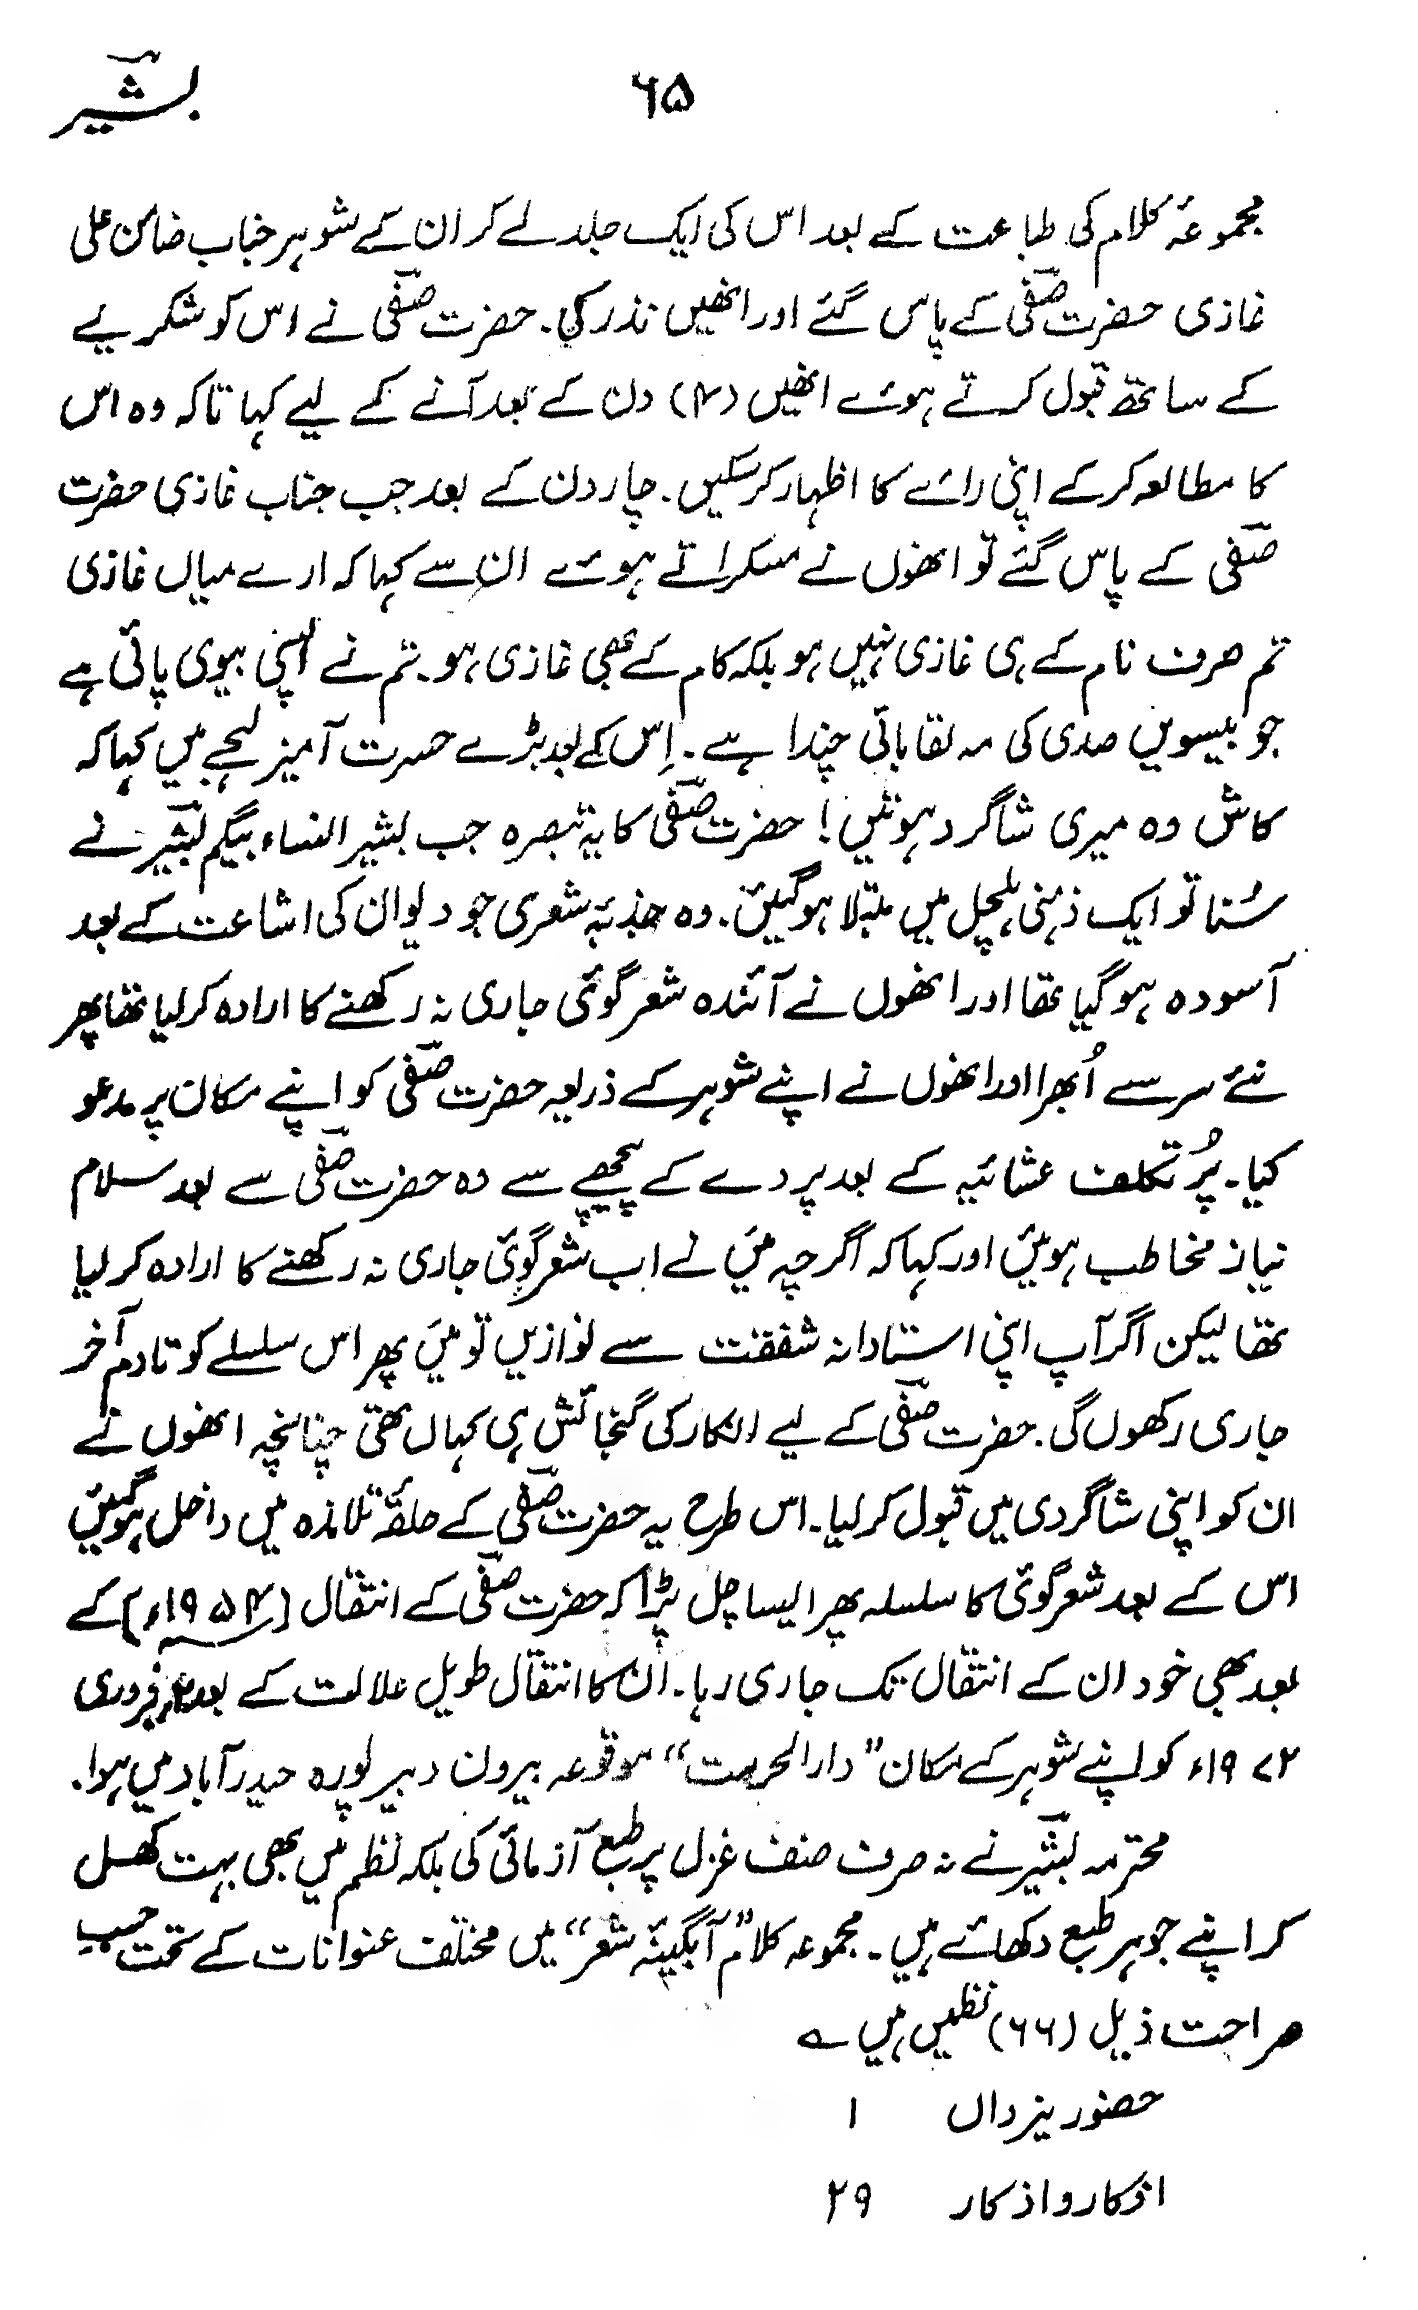 بشیرؔ
۶۵
مجموعۂ کلام کی طباعت کے بعد اس کی ایک جلد لے کر ان کے شوہر جناب ضامن علی
غازی حضرت صفیؔ کے پاس گئے اور انھیں نذر کی۔ حضرت صفیؔ نے اس کو شکریے
کے ساتھ قبول کرتے ہوئے انھیں (۴) دن کے بعد آنے کے لیے کہا تاکہ وہ اس
کا مطالعہ کر کے اپنی رائے کا اظہار کر سکیں۔ چار دن کے بعد جب جناب غازی حضرت
صفیؔ کے پاس گئے تو انھوں نے مسکراتے ہوئے ان سے کہا کہ ارے میاں غازی
تم صرف نام کے ہی غازی نہیں ہو بلکہ کام کے بھی غازی ہو۔ تم نے ایسی بیوی پائی ہے
جو بیسویں صدی کی مہ لقا بائی چندا ہے۔ اِس کے بعد بڑے حسرت آمیز لہجے میں کہا کہ
کاش وہ میری شاگرد ہوتیں! حضرت صفیؔ کا یہ تبصرہ جب بشیر النساء بیگم بشیرؔ نے
سُنا تو ایک ذہنی ہلچل میں مبتلا ہو گئیں۔ وہ جذبۂ شعری جو دیوان کی اشاعت کے بعد
آسودہ ہو گیا تھا اور انھوں نے آئندہ شعر گوئی جاری نہ رکھنے کا ارادہ کر لیا تھا پھر
نئے سر سے اُبھرا اور انھوں نے اپنے شوہر کے ذریعہ حضرت صفیؔ کو اپنے مکان پر مدعو
کیا۔ پُر تکلف عشائیہ کے بعد پردے کے پیچھے سے وہ حضرت صفیؔ سے بعد سلام
نیاز مخاطب ہوئیں اور کہا کہ اگرچہ میں نے اب شعر گوئی جاری نہ رکھنے کا ارادہ کر لیا
تھا لیکن اگر آپ اپنی استادانہ شفقت سے نوازیں تو میں پھر اس سلسلے کو تادم آخر
جاری رکھوں گی۔ حضرت صفیؔ کے لیے انکار کی گنجائش ہی کہاں تھی چنانچہ انھوں نے
ان کو اپنی شاگردی میں قبول کر لیا۔ اس طرح یہ حضرت صفیؔ کے حلقۂ تلامذہ میں داخل ہو گئیں
اس کے بعد شعر گوئی کا سلسلہ پھر ایسا چل پڑا کہ حضرت صفیؔ کے انتقال (۱۹۵۴ء) کے
بعد بھی خود ان کے انتقال تک جاری رہا۔ ان کا انتقال طویل علالت کے بعد فروری
۱۹۷۲ء کو اپنے شوہر کے مکان "دارالحرمت" موقوعہ بیرون دبیر پورہ حیدرآباد میں ہوا۔
محترمہ بشیرؔ نے نہ صرف صنف غزل پر طبع آزمائی کی بلکہ نظم میں بھی بہت کھل
کر اپنے جوہر طبع دکھائے ہیں۔ مجموعہ کلام "آبگینۂ شعر" میں مختلف عنوانات کے تحت حسبِ
صراحت ذیل (۶۶) نظمیں ہیں ؎
حضور یزداں ۱
افکار و اذکار ۲۹